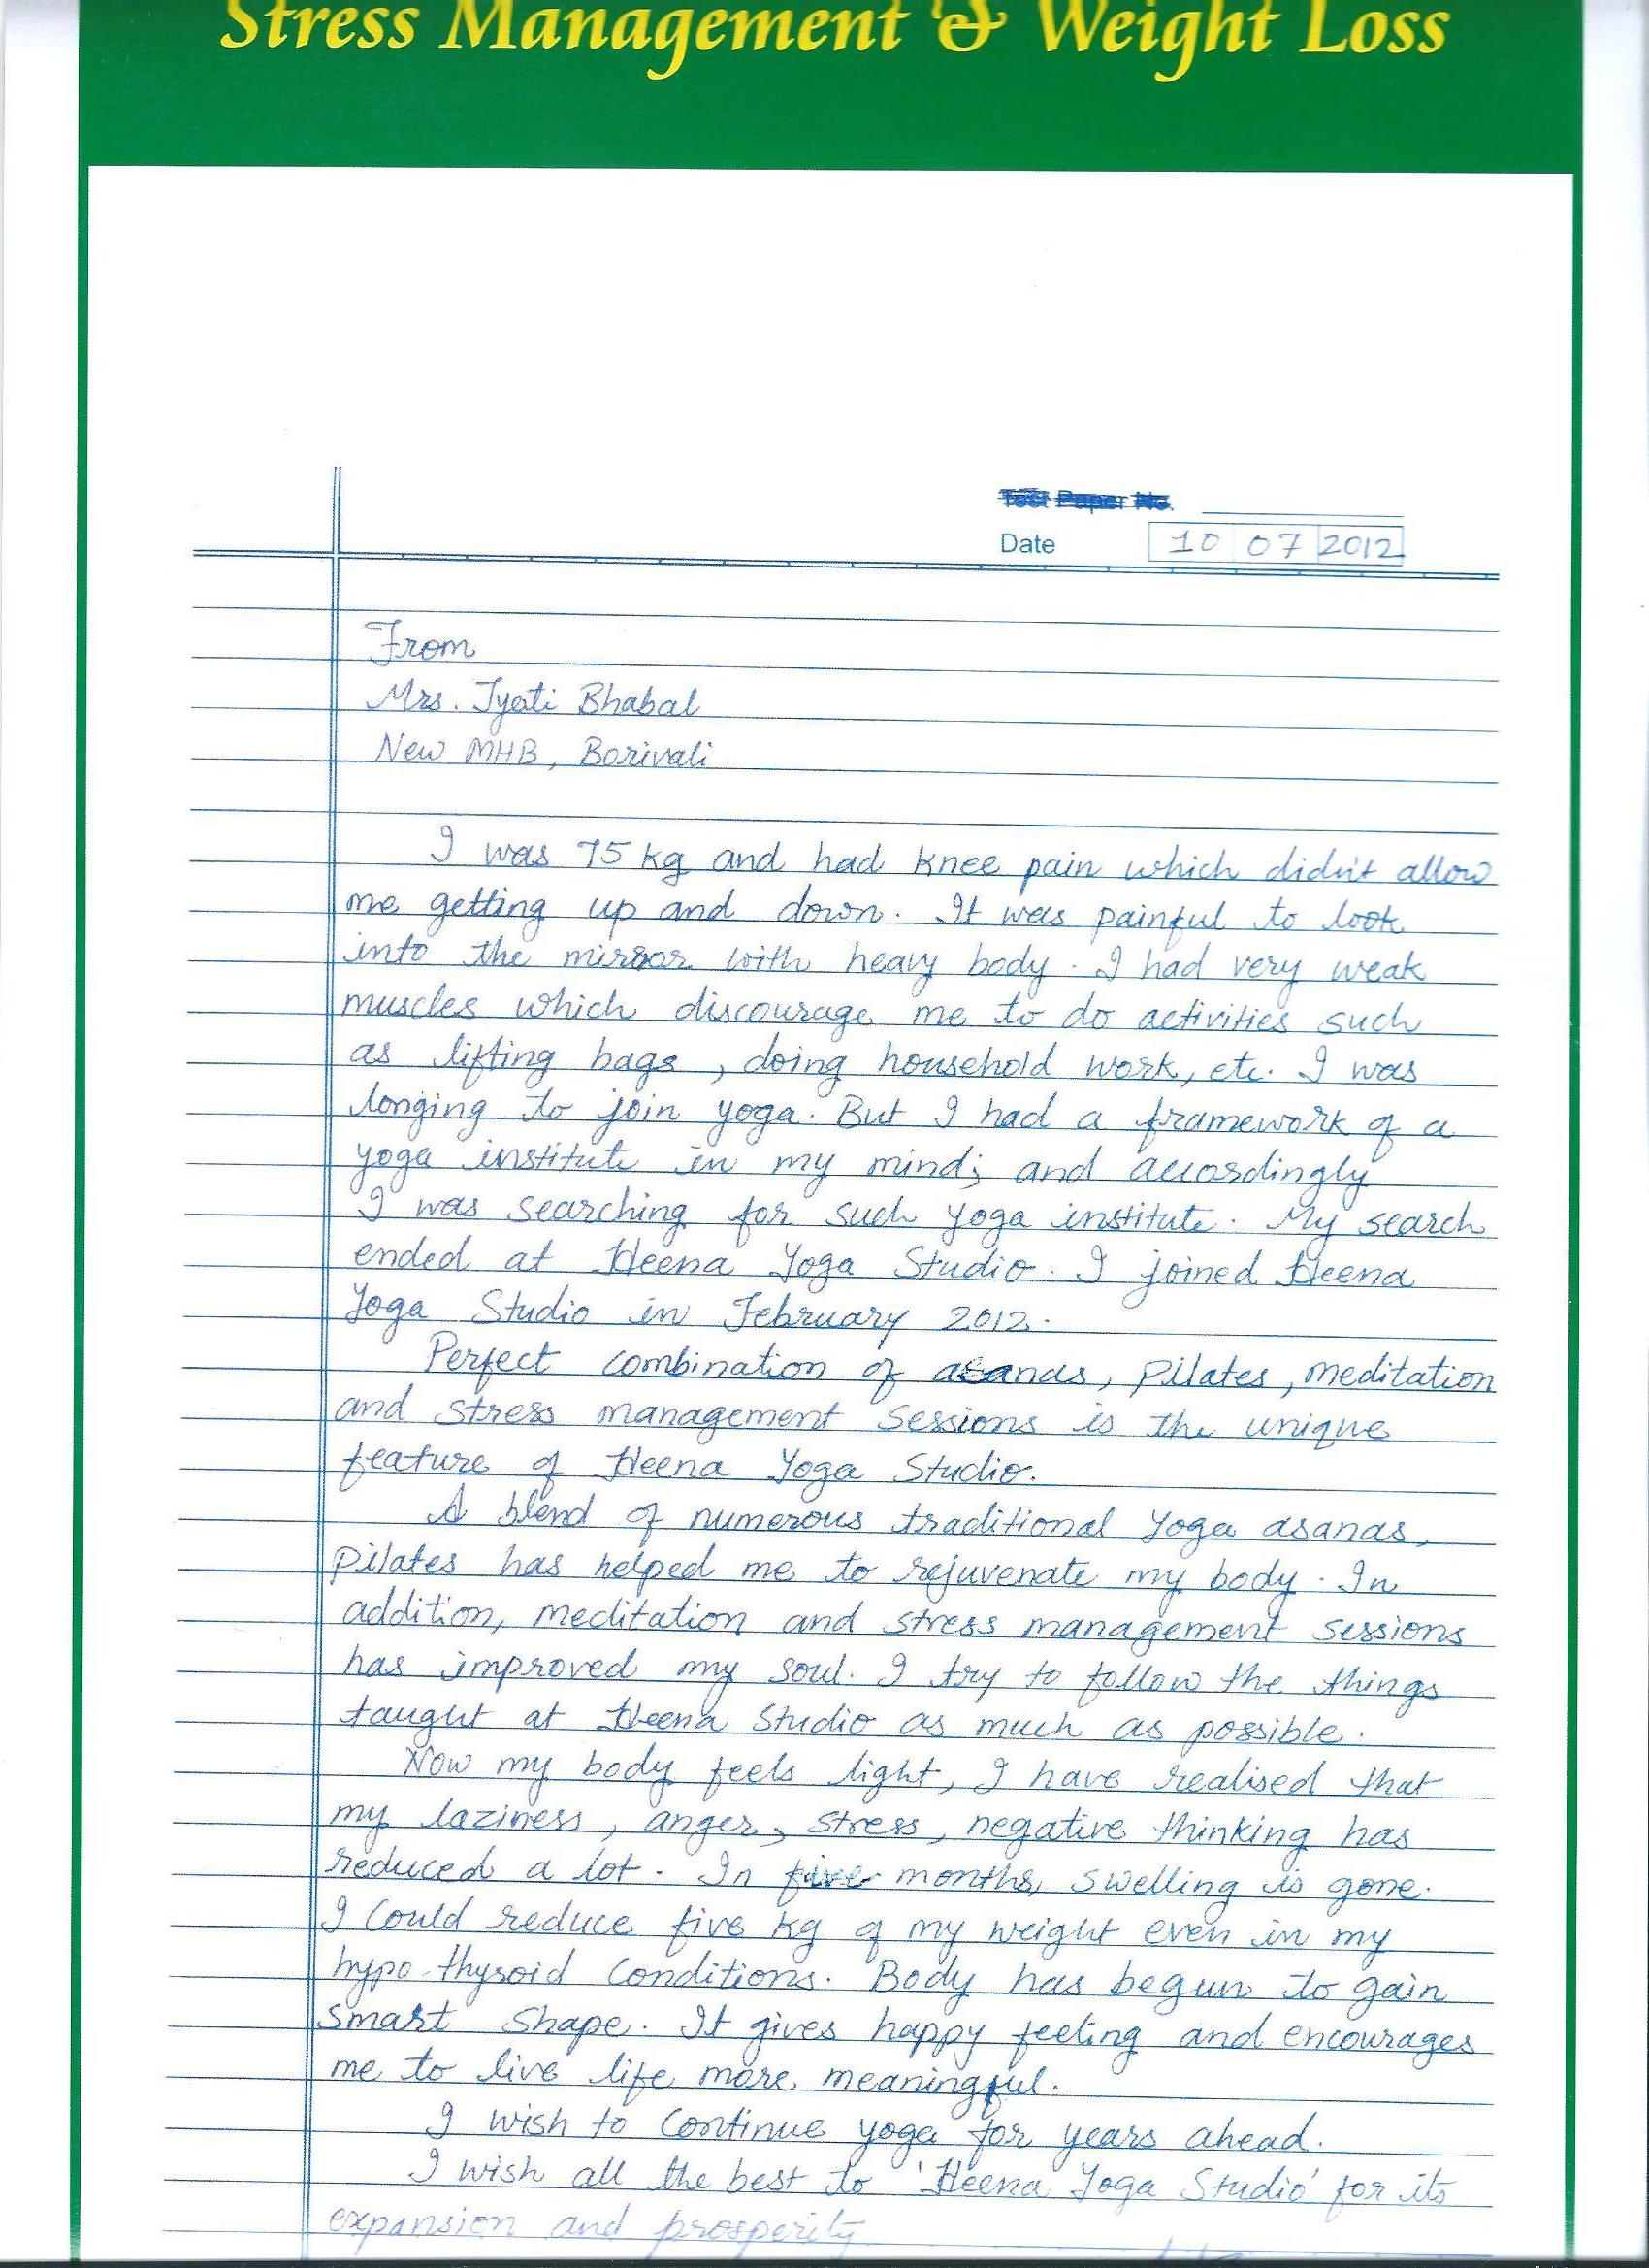 Stress Management & Weight Loss
Test Paper No.
Date 10 07 2012
From
Mrs. Jyoti Bhabal
New MHB, Borivali
I was 75 kg and had knee pain which didn't allow
me getting up and down. It was painful to look
into the mirror with heavy body. I had very weak
muscles which discourage me to do activities such
as lifting bags, doing household work, etc. I was
longing to join yoga. But I had a framework of a
yoga institute in my mind; and accordingly
I was searching for such yoga institute. My search
ended at Heena Yoga Studio. I joined Heena
Yoga Studio in February 2012.
Perfect combination of asanas, pilates, meditation
and stress management sessions is the unique
feature of Heena Yoga Studio.
A blend of numerous traditional yoga asanas,
pilates has helped me to rejuvenate my body. In
addition, meditation and stress management sessions
has improved my soul. I try to follow the things
taught at Heena Studio as much as possible.
Now my body feels light, I have realised that
my laziness, anger, stress, negative thinking has
reduced a lot. In five months, swelling is gone.
I could reduce five kg of my weight even in my
hypo-thyroid conditions. Body has begun to gain
smart shape. It gives happy feeling and encourages
me to live life more meaningful.
I wish to continue yoga for years ahead.
I wish all the best to 'Heena Yoga Studio' for its
expansion and prosperity